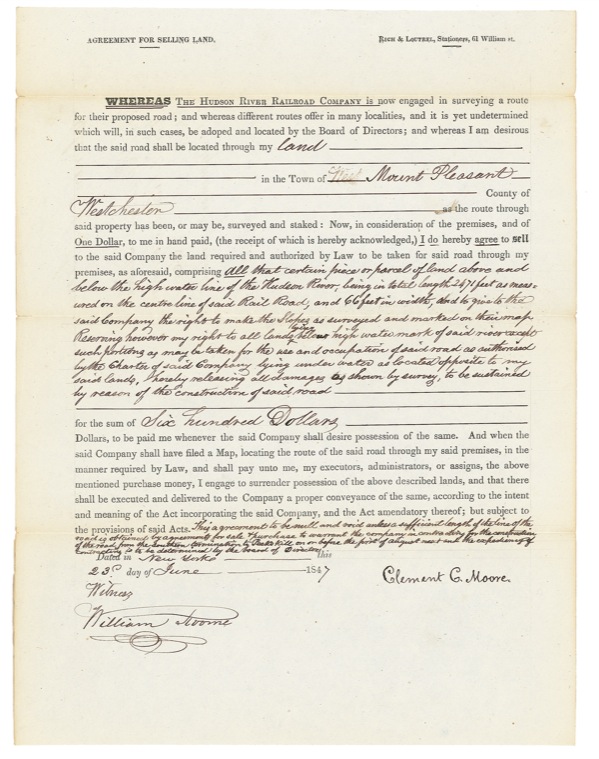 AGREEMENT FOR SELLING LAND.
RICH & LOUTREL, Stationers, 61 William st.
WHEREAS THE HUDSON RIVER RAILROAD COMPANY is now engaged in surveying a route
for their proposed road; and whereas different routes offer in many localities, and it is yet undetermined
which will, in such cases, be adopted and located by the Board of Directors; and whereas I am desirous
that the said road shall be located through my land
in the Town of West Mount Pleasant
County of
Westchester as the route through
said property has been, or may be, surveyed and staked: Now, in consideration of the premises, and of
One Dollar, to me in hand paid, (the receipt of which is hereby acknowledged,) I do hereby agree to sell
to the said Company the land required and authorized by Law to be taken for said road through my
premises, as aforesaid, comprising All that certain piece or parcel of land above and
below the high water line of the Hudson River, being in total length 2471 feet as meas-
ured on the centre line of said Rail Road, and 66 feet in width, and to give to the
said Company the right to make the Slopes as surveyed and marked on their map
Reserving however my right to all lands lying below high water mark of said river except
such portions as may be taken for the use and occupation of said road as authorised
by the Charter of said Company lying under water as located opposite to my
said lands, hereby releasing all damages as shown by survey, to be sustained
by reason of the construction of said road
for the sum of Six hundred Dollars
Dollars, to be paid me whenever the said Company shall desire possession of the same. And when the
said Company shall have filed a Map, locating the route of the said road through my said premises, in the
manner required by Law, and shall pay unto me, my executors, administrators, or assigns, the above
mentioned purchase money, I engage to surrender possession of the above described lands, and that there
shall be executed and delivered to the Company a proper conveyance of the same, according to the intent
and meaning of the Act incorporating the said Company, and the Act amendatory thereof; but subject to
the provisions of said Acts. This agreement to be null and void unless a sufficient length of the line of the
road is obtained by agreements for sale & purchase to warrant the company in contracting for the construction
of the road from the southern termination to Peekskill on or before the first of August next and the expediency of
contracting is to be determined by the board of Directors
Dated in New York this
23d day of June 1847
Clement C. Moore.
Witness
William